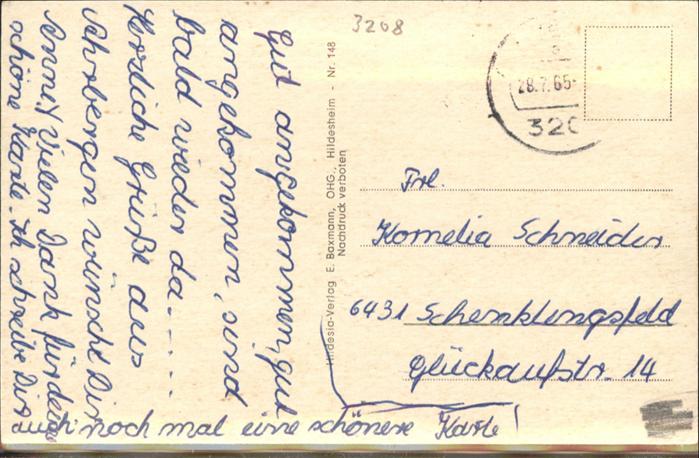 3208
28.7.65
320
Gut angekommen, gut
angekommen, sind
bald wieder da.....
Herzliche Grüße aus
wünscht Dir
Anni! Vielen Dank für deine
schöne Karte. Ich schreibe Dir
auch noch mal eine schönere Karte!
Hildesia-Verlag E. Baxmann, OHG., Hildesheim - Nr. 148
Nachdruck verboten
Frl.
Kornelia Schneider
6431 Schenklengsfeld
Glückaufstr. 14